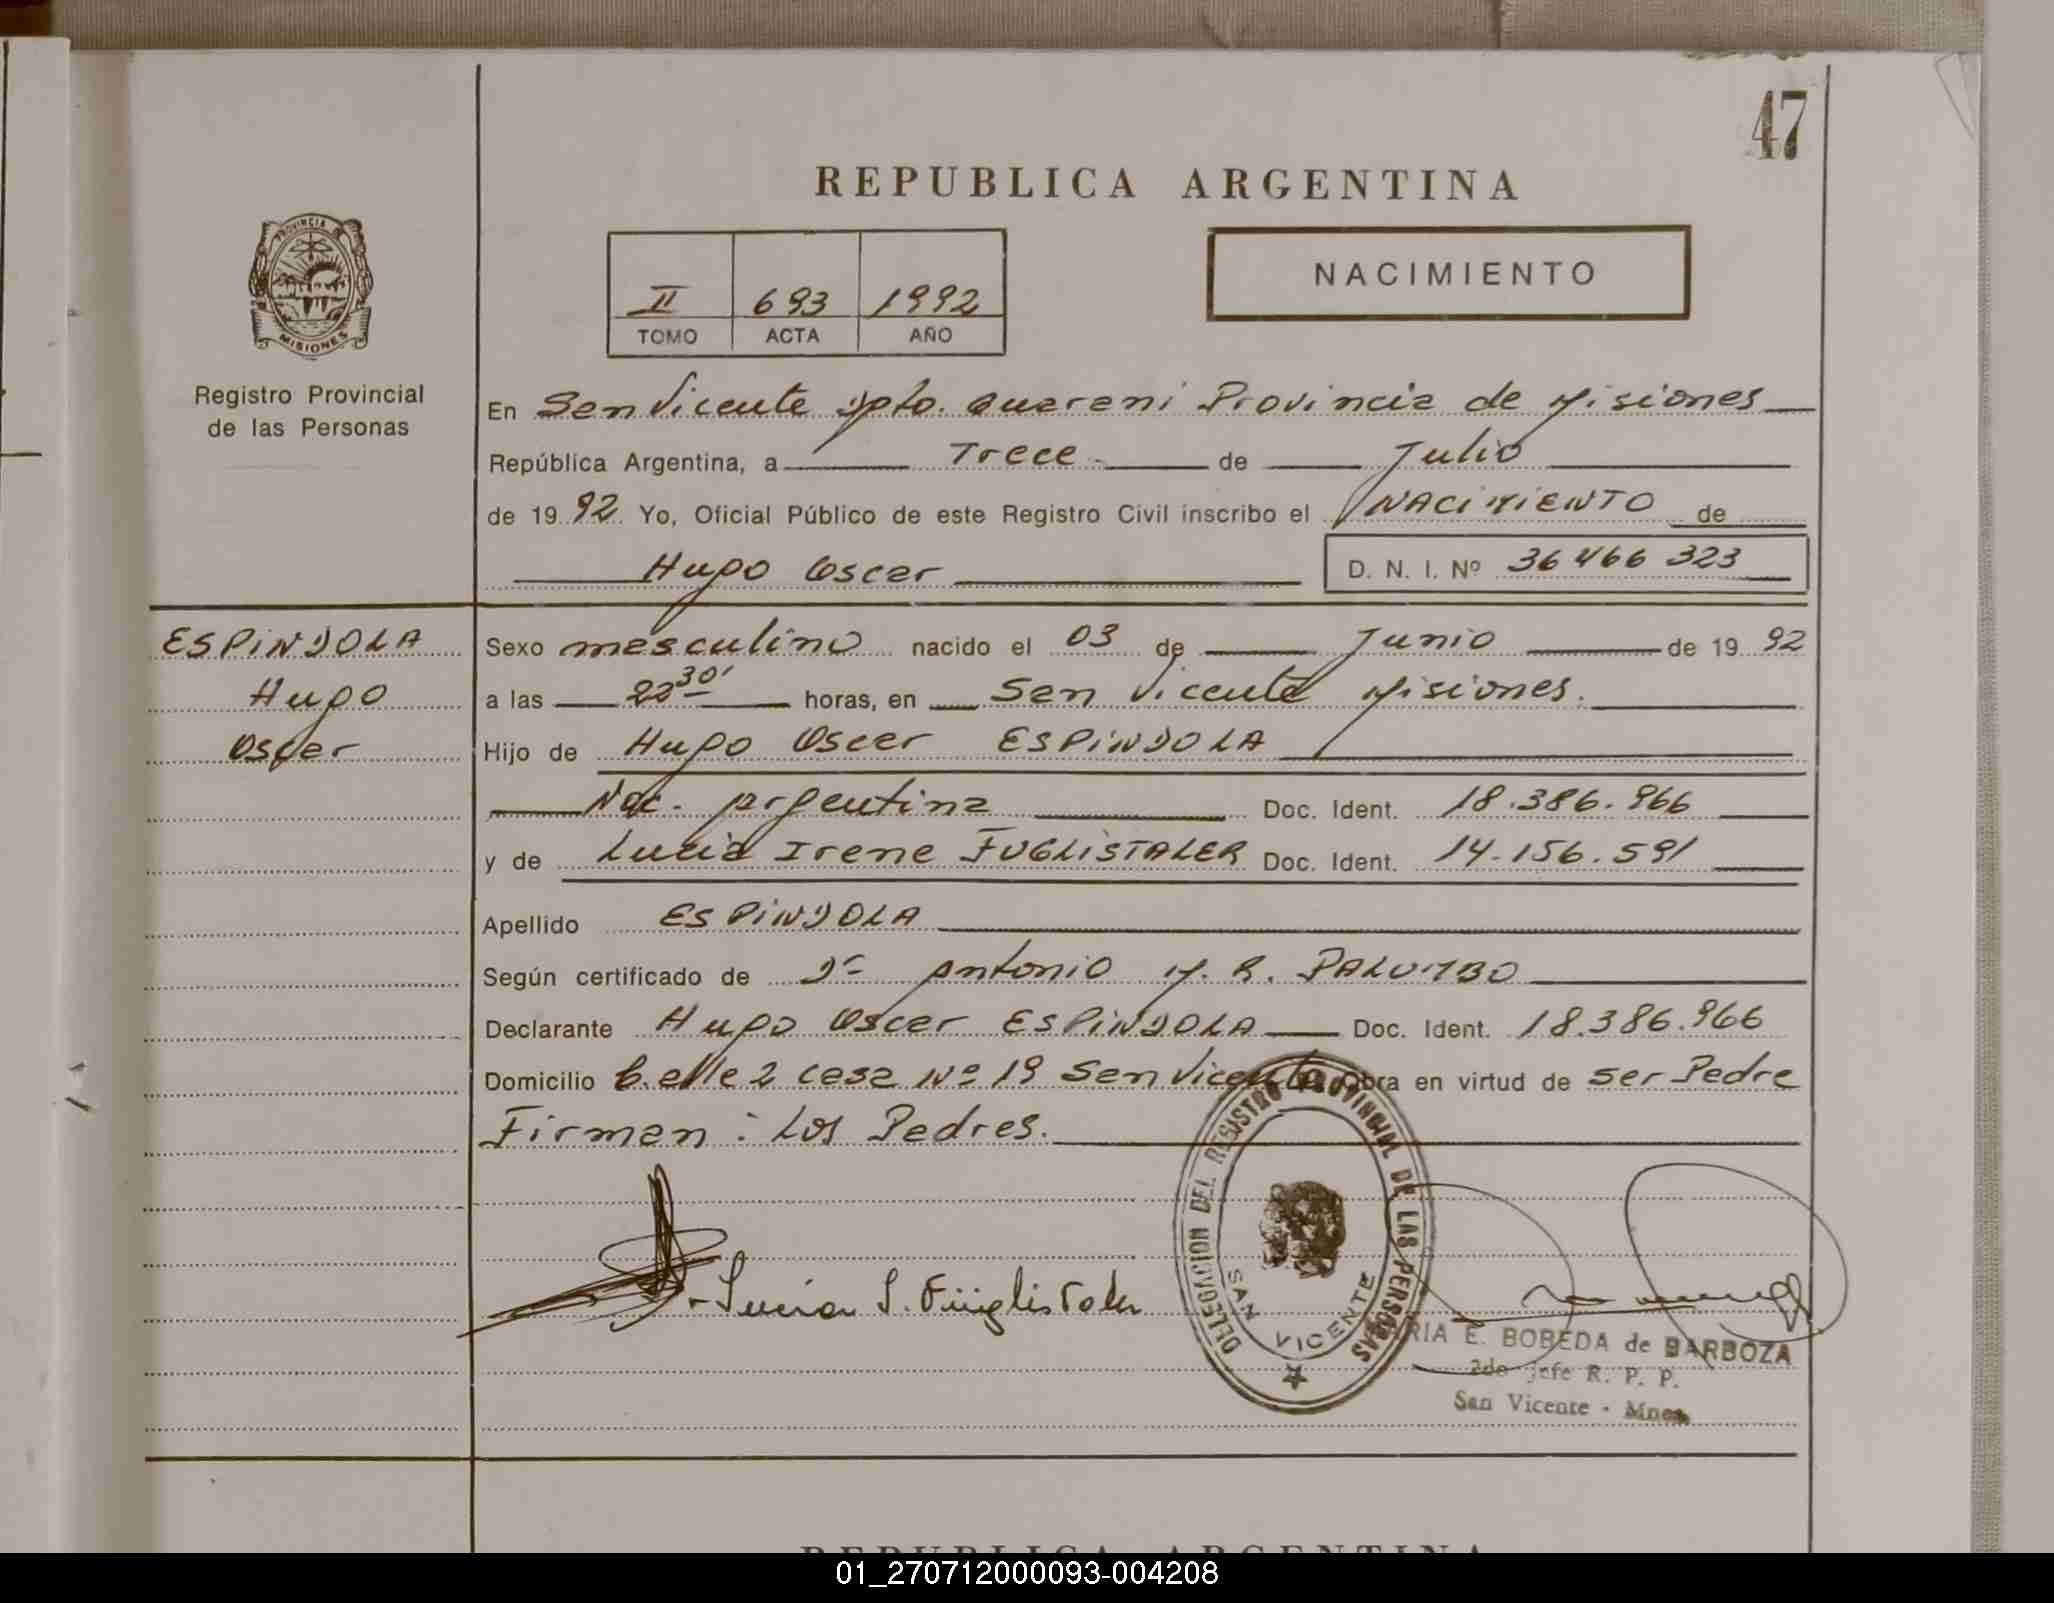 47
REPUBLICA ARGENTINA
PROVINCIA DE
MISIONES
Registro Provincial
de las Personas
II 693 1992
TOMO ACTA AÑO
NACIMIENTO
En San Vicente Dpto. Guarani Provincia de Misiones
República Argentina, a Trece de Julio
de 1992 Yo, Oficial Público de este Registro Civil inscribo el NACIMIENTO de
Hugo Oscar D. N. I. Nº 36 466 323
ESPINDOLA
Hugo
Oscar
Sexo masculino nacido el 03 de Junio de 1992
a las 22 30' horas, en San Vicente Misiones.
Hijo de Hugo Oscar ESPINDOLA
Nac. Argentina Doc. Ident. 18.386.966
y de Lucia Irene FUGLISTALER Doc. Ident. 14.156.591
Apellido ESPINDOLA
Según certificado de Dr Antonio M. R. PALUMBO
Declarante Hugo Oscar ESPINDOLA Doc. Ident. 18.386.966
Domicilio Calle 2 casa Nº 19 San Vicente Obra en virtud de ser Padre
Firman: Los Padres.
DELEGACION DEL REGISTRO PROVINCIAL DE LAS PERSONAS
SAN VICENTE
Lucia I. Fuglistaler
RIA E. BOBEDA de BARBOZA
2do Jefe R. P. P.
San Vicente - Mnes
REPUBLICA ARGENTINA
01_270712000093-004208